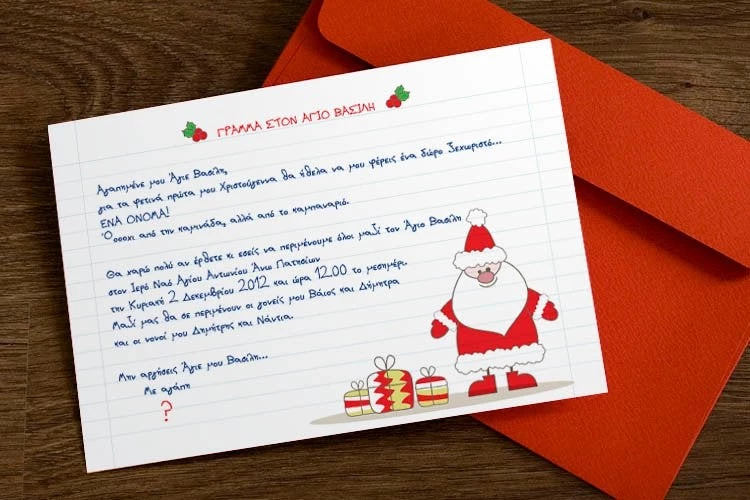 ΓΡΑΜΜΑ ΣΤΟΝ ΑΓΙΟ ΒΑΣΙΛΗ
Αγαπημένε μου Άγιε Βασίλη,
για τα φετινά πρώτα μου Χριστούγεννα θα ήθελα να μου φέρεις ένα δώρο ξεχωριστό...
ΕΝΑ ΟΝΟΜΑ!
Όοοοχι από την καμινάδα, αλλά από το καμπαναριό.
Θα χαρώ πολύ αν έρθετε κι εσείς να περιμένουμε όλοι μαζί τον Άγιο Βασίλη
στον Ιερό Ναό Αγίου Αντωνίου Άνω Πατησίων
την Κυριακή 2 Δεκεμβρίου 2012 και ώρα 12.00 το μεσημέρι.
Μαζί μας θα σε περιμένουν οι γονείς μου Βάιος και Δήμητρα
και οι νονοί μου Δημήτρης και Νάντια.
Μην αργήσεις Άγιε μου Βασίλη...
Με αγάπη
?